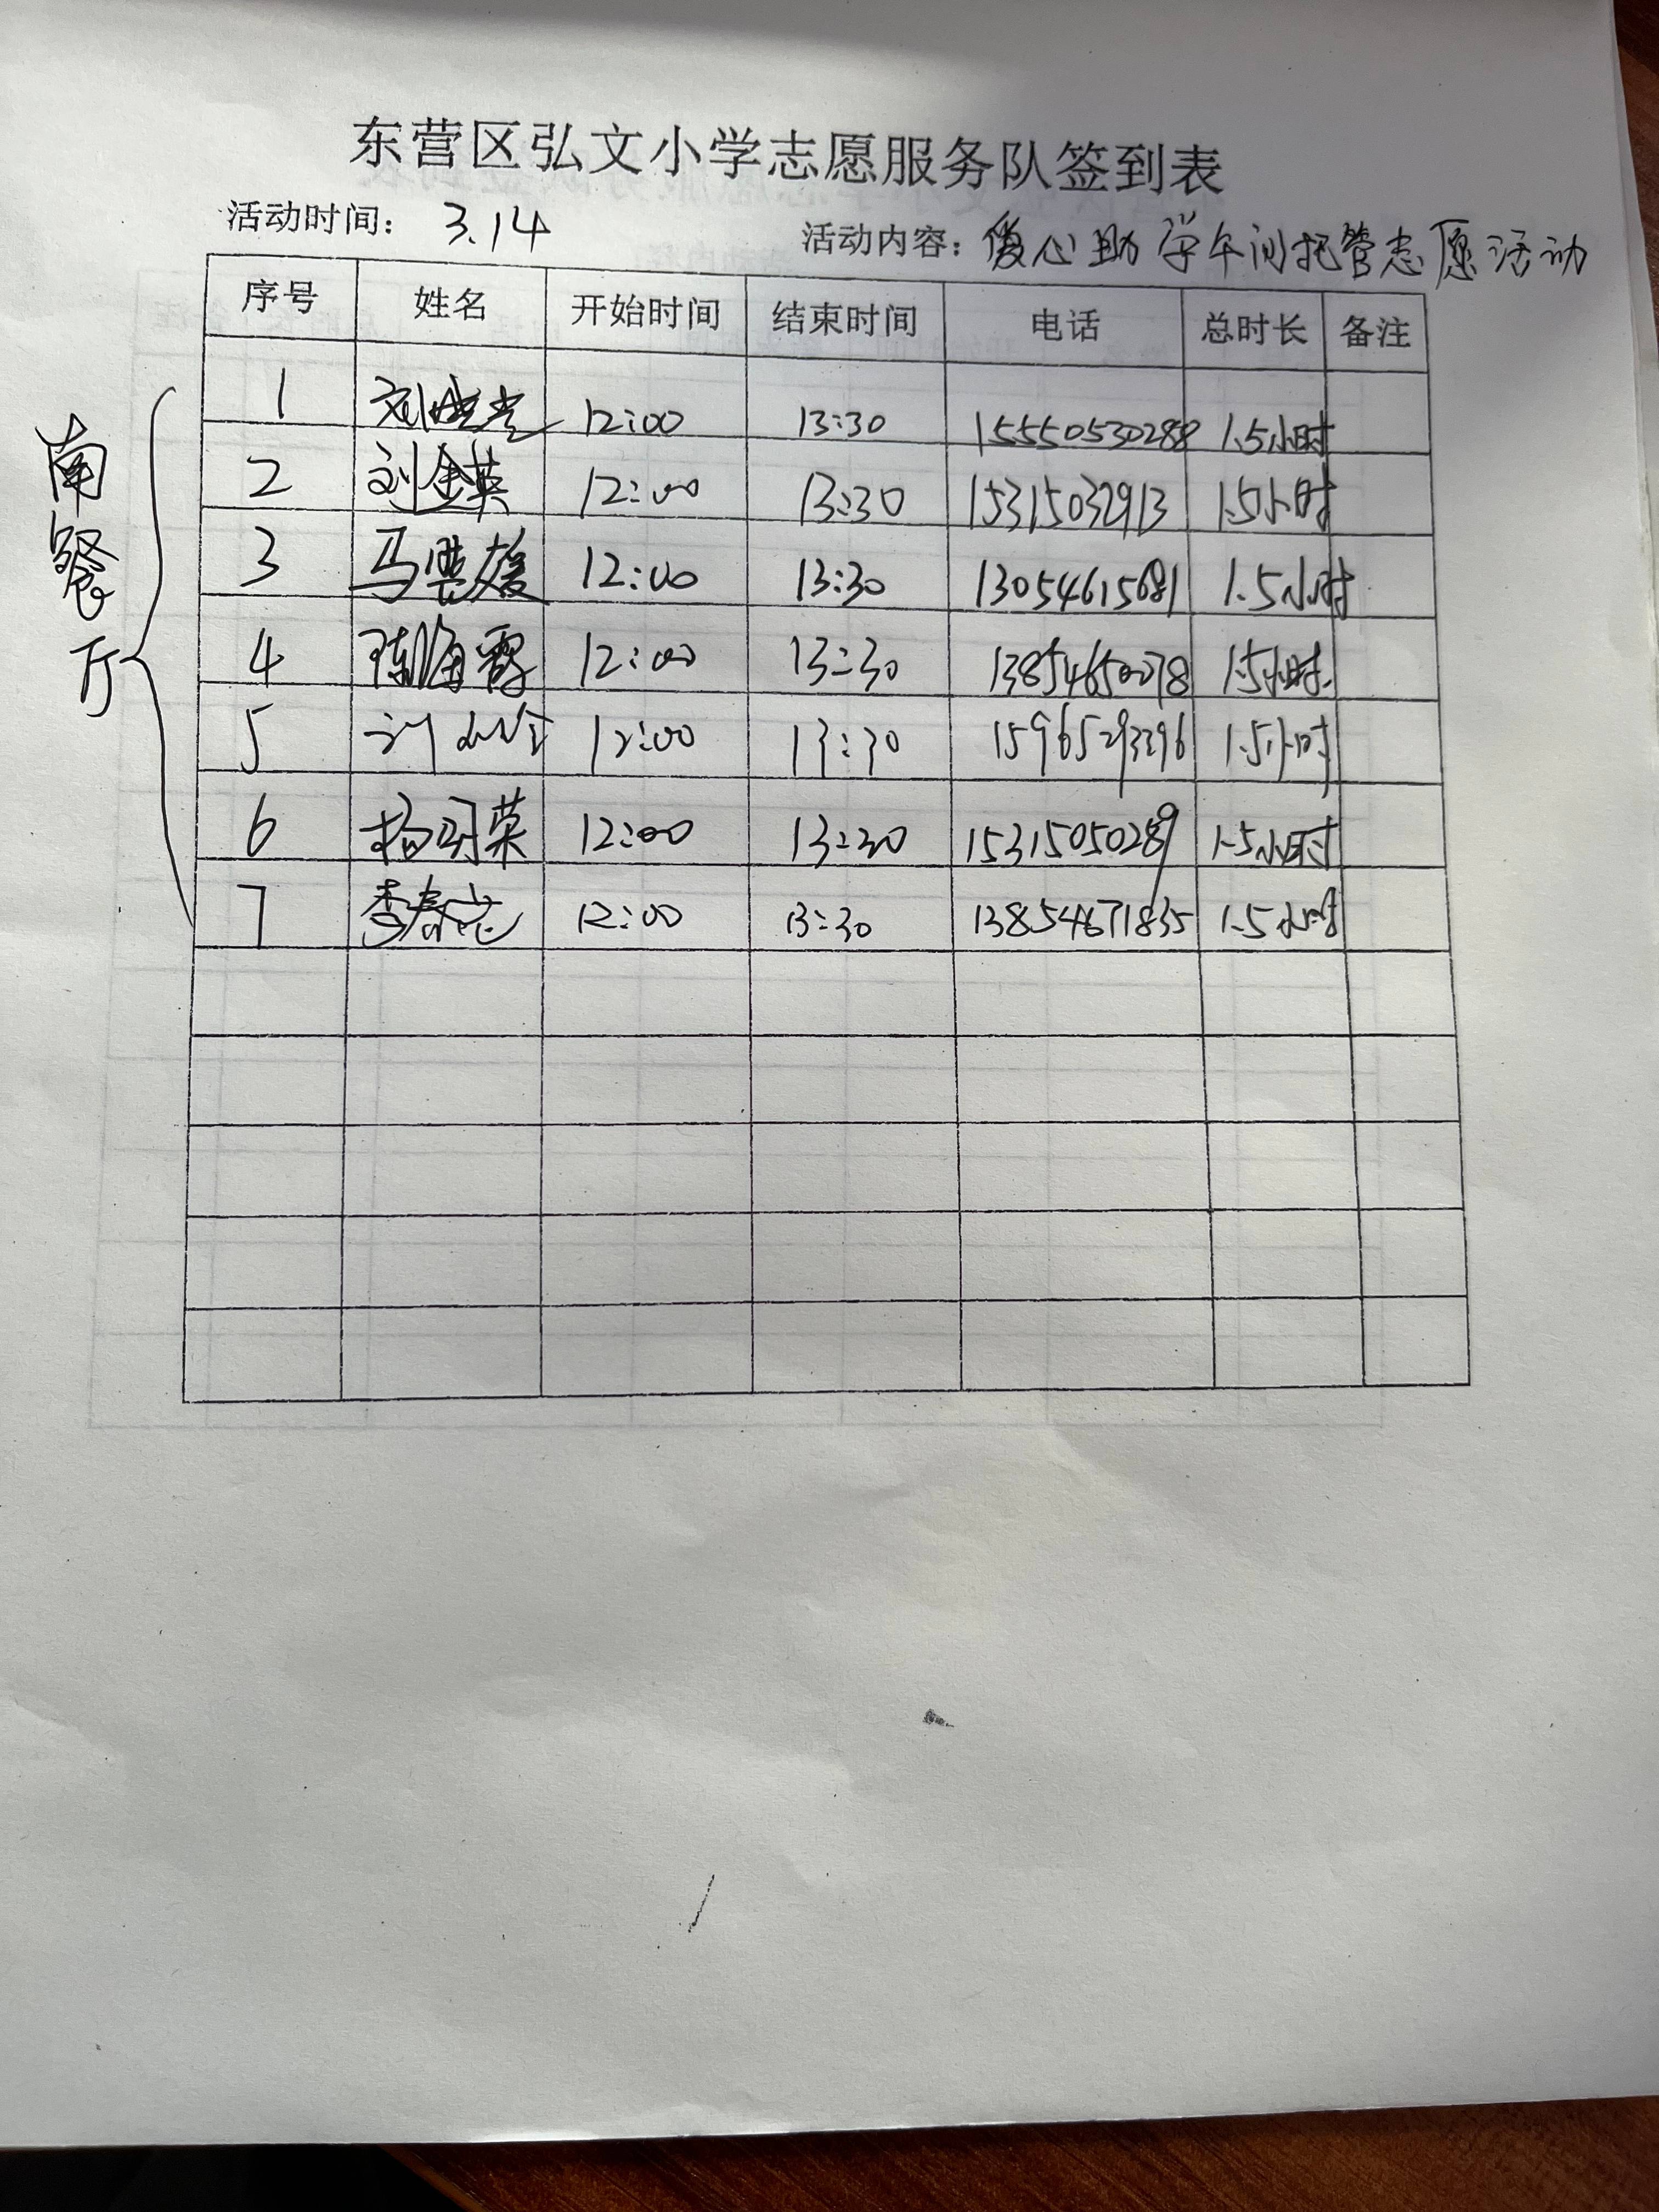 东营区弘文小学志愿服务队签到表
活动时间： 3.14 活动内容：爱心助学午间托管志愿活动
序号 姓名 开始时间 结束时间 电话 总时长 备注
南餐厅
1 12:00 13:30 15550530288 1.5小时
2 刘金英 12:00 13:30 15315032913 1.5小时
3 12:00 13:30 13054615681 1.5小时
4 陈海霞 12:00 13:30 13854650078 1.5小时
5 12:00 13:30 15965293296 1.5小时
6 12:00 13:30 15315050289 1.5小时
7 12:00 13:30 13854671835 1.5小时